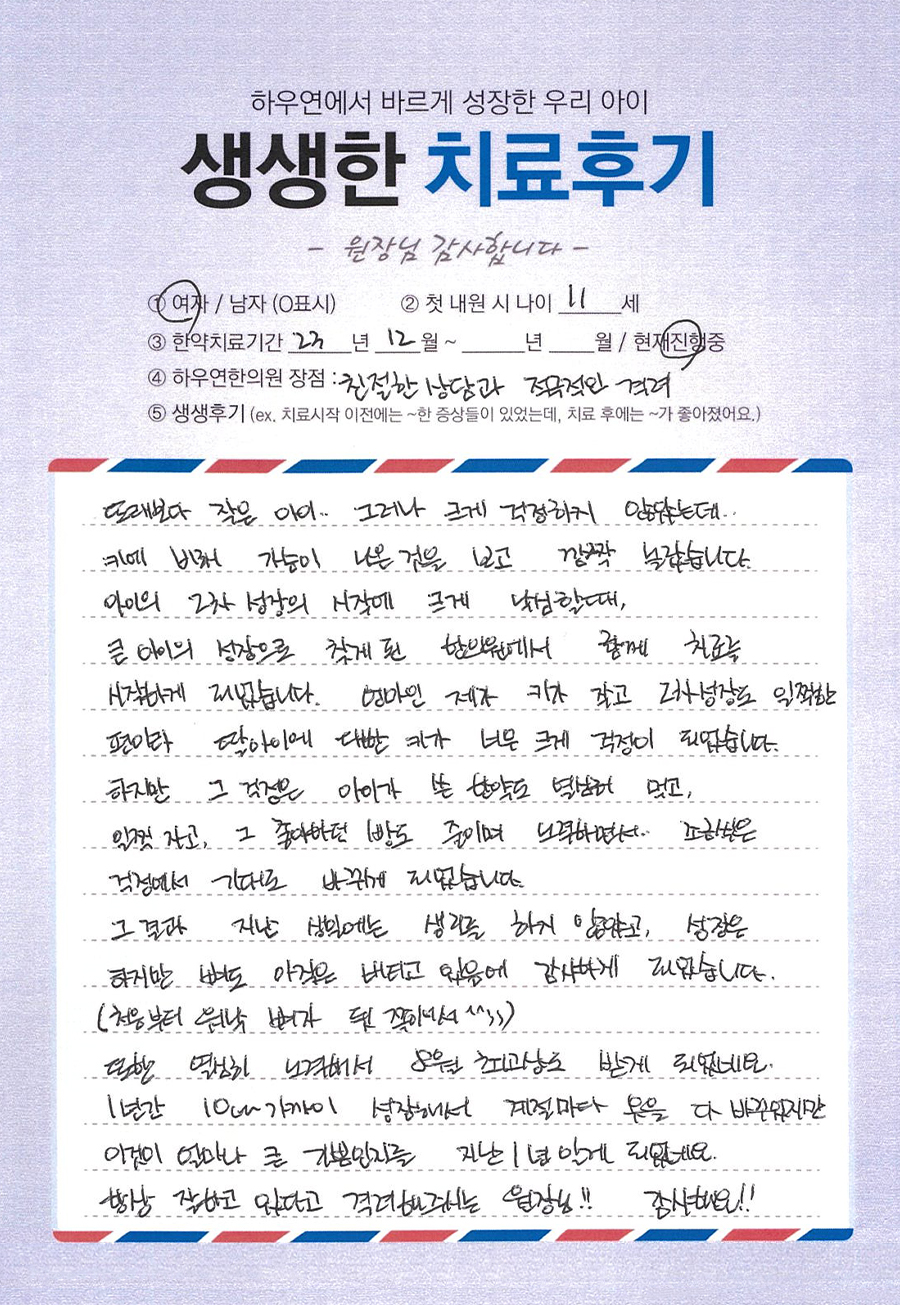 하우연에서 바르게 성장한 우리 아이
생생한 치료후기
- 원장님 감사합니다 -
① 여자 / 남자 (O표시) ② 첫 내원 시 나이 11 세
③ 한약치료기간 23 년 12 월 ~ 년 월 / 현재진행중
④ 하우연한의원 장점 : 친절한 상담과 적극적인 격려
⑤ 생생후기 (ex. 치료시작 이전에는 ~한 증상들이 있었는데, 치료 후에는 ~가 좋아졌어요.)
또래보다 작은 아이.. 그러나 크게 걱정하지 않았는데..
키에 비해 가슴이 나온 것을 보고 깜짝 놀랐습니다.
아이의 2차 성장의 시작에 크게 낙심할때,
큰 아이의 성장으로 찾게 된 한의원에서 함께 치료를
시작하게 되었습니다. 엄마인 제가 키가 작고 2차성장도 일찍한
편이라 딸아이에 대한 키가 너무 크게 걱정이 되었습니다.
하지만 그 걱정은 아이가 쓴 한약도 열심히 먹고,
일찍 자고, 그 좋아하던 빵도 줄이며 노력하면서.. 조금씩은
걱정에서 기대로 바뀌게 되었습니다.
그 결과 지난 생일에는 생리를 하지 않았고, 성장은
하지만 뼈도 아직은 버티고 있음에 감사하게 되었습니다.
(처음부터 워낙 뼈가 뒤 쪽이어서^^;;)
또한 열심히 노력해서 8월 최고상도 받게 되었네요.
1년간 10cm 가까이 성장해서 계절마다 옷을 다 바꾸었지만
이것이 얼마나 큰 기쁨인지를 지난 1년 알게 되었네요.
항상 잘하고 있다고 격려해주시는 원장님!! 감사해요!!